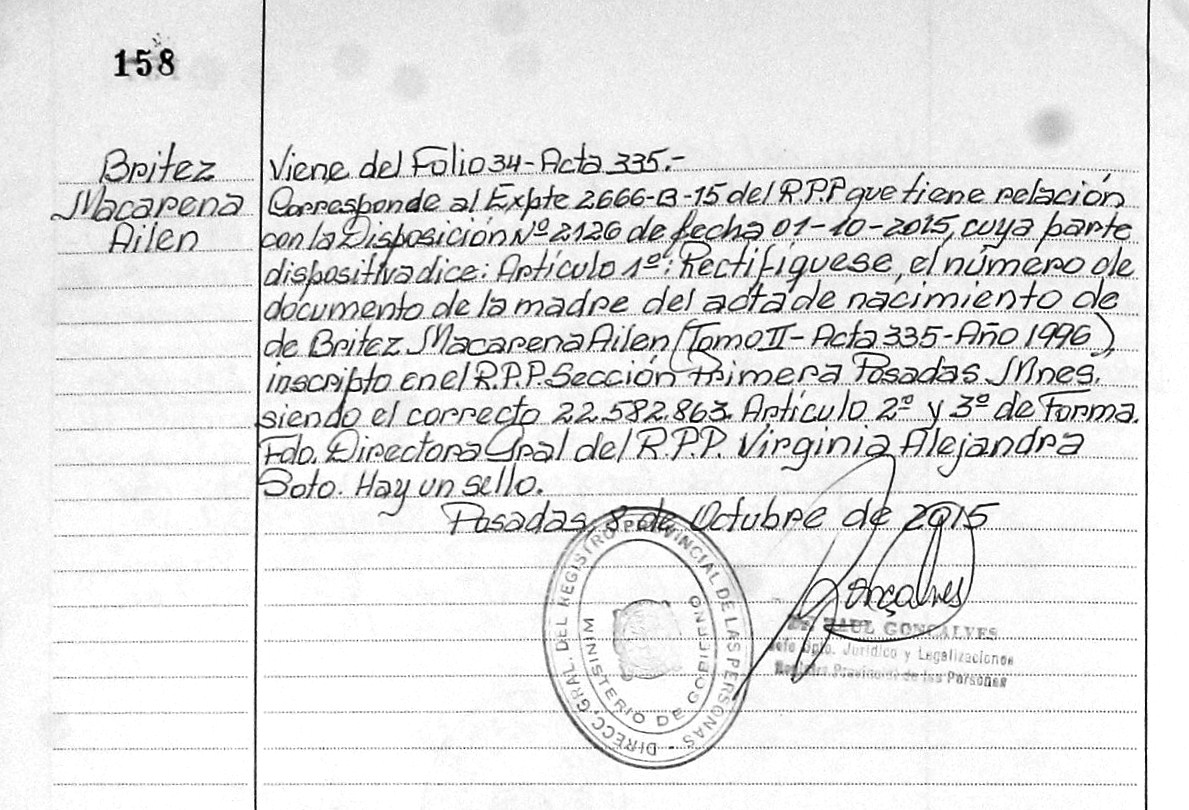 158
Britez
Macarena
Ailen
Viene del Folio 34-Acta 335.-
Corresponde al Expte 2666-B-15 del R.P.P que tiene relación
con la Disposición Nº 2126 de fecha 01-10-2015, cuya parte
dispositiva dice: Artículo 1º: Rectifíquese, el número de
documento de la madre del acta de nacimiento de
de Britez Macarena Ailen (Tomo II- Acta 335-Año 1996),
inscripto en el R.P.P. Sección Primera Posadas Mnes.
siendo el correcto 22.582.863. Artículo 2º y 3º de Forma.
Fdo. Directora Gral del R.P.P. Virginia Alejandra
Soto. Hay un sello.
Posadas, 8 de Octubre de 2015
DIRECC. GRAL. DEL REGISTRO PROVINCIAL DE LAS PERSONAS -
MINISTERIO DE GOBIERNO
Gonçalves
Dr. RAUL GONCALVES
Jefe Dpto. Jurídico y Legalizaciones
Registro Provincial de las Personas